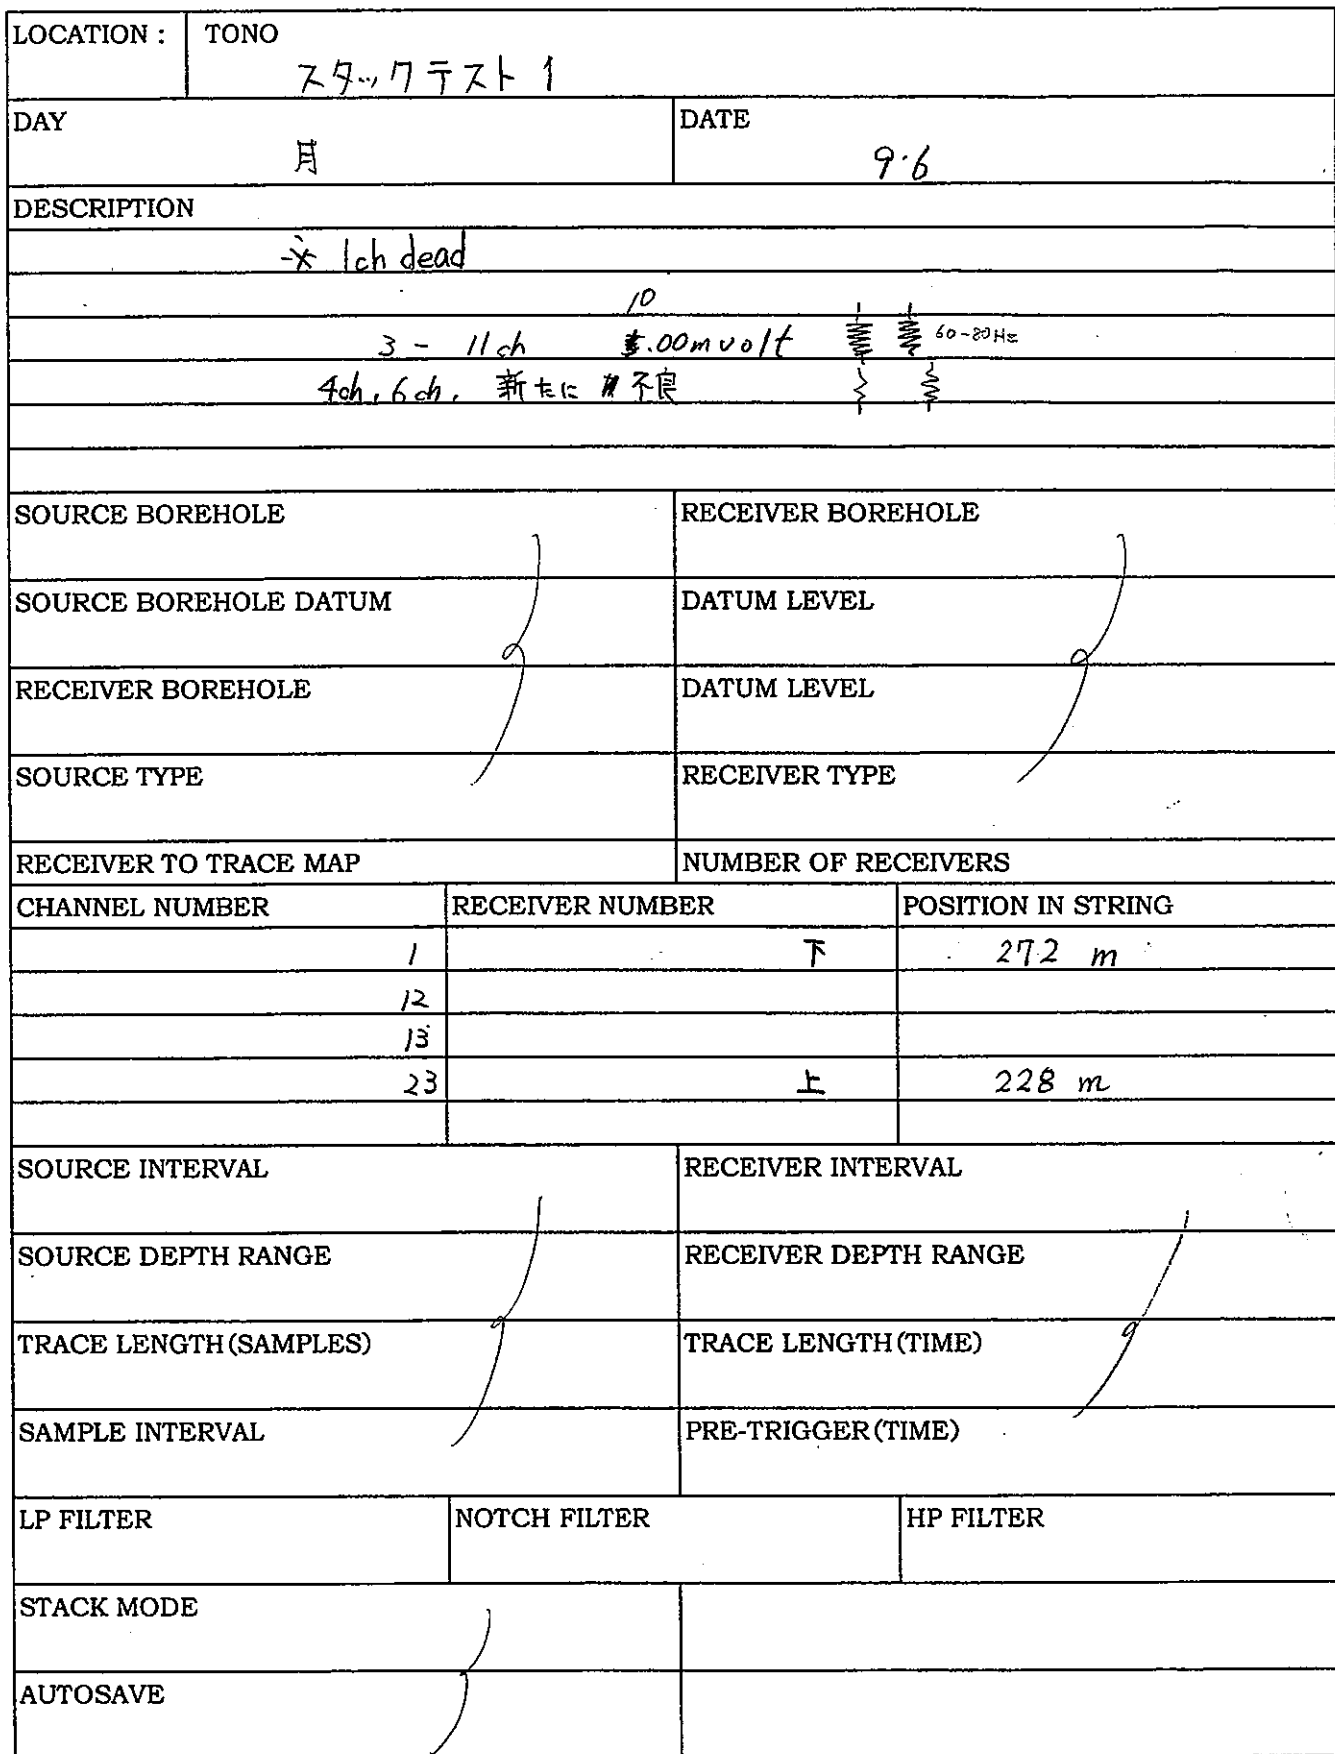 LOCATION : TONO
スタックテスト 1
DAY DATE
月 9.6
DESCRIPTION
※ 1ch dead
10
3 - 11ch .00mvolt 60-80Hz
4ch, 6ch, 新たに 不良
SOURCE BOREHOLE RECEIVER BOREHOLE
SOURCE BOREHOLE DATUM DATUM LEVEL
RECEIVER BOREHOLE DATUM LEVEL
SOURCE TYPE RECEIVER TYPE
RECEIVER TO TRACE MAP NUMBER OF RECEIVERS
CHANNEL NUMBER RECEIVER NUMBER POSITION IN STRING
1 下 272 m
12
13
23 上 228 m
SOURCE INTERVAL RECEIVER INTERVAL
SOURCE DEPTH RANGE RECEIVER DEPTH RANGE
TRACE LENGTH(SAMPLES) TRACE LENGTH(TIME)
SAMPLE INTERVAL PRE-TRIGGER(TIME)
LP FILTER NOTCH FILTER HP FILTER
STACK MODE
AUTOSAVE